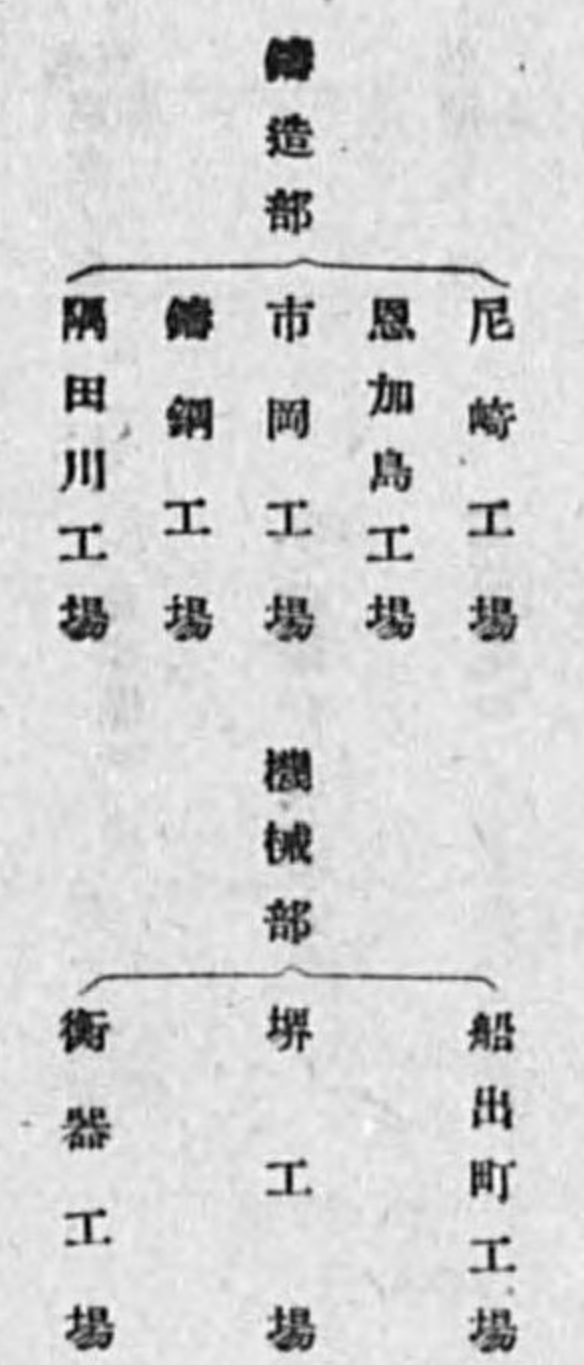 鑄造部
尼崎工場
恩加島工場
市岡工場
鑄鋼工場
隅田川工場
機械部
船出町工場
堺工場
衡器工場